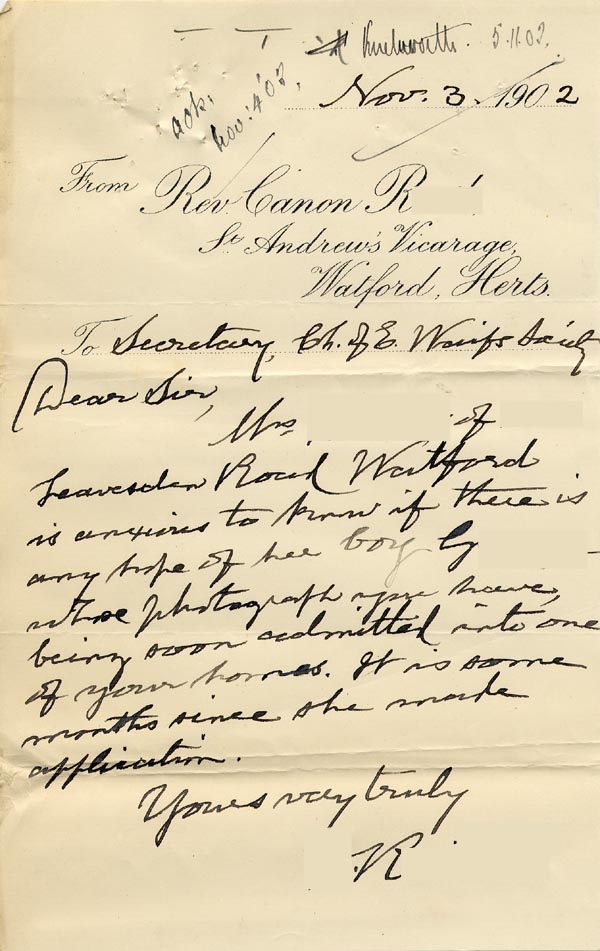 5.11.02.
ack.
Nov: 4'02,
Nov. 3. 1902
From Rev Canon R
St Andrew's Vicarage,
Watford, Herts.
To Secretary, Ch. of E. Waifs Society
Dear Sir,
Mrs of
Leavesden Road Watford
is anxious to know if there is
any hope of her boy
whose photograph you have,
being soon admitted into one
of your homes. It is some
months since she made
application.
Yours very truly
R